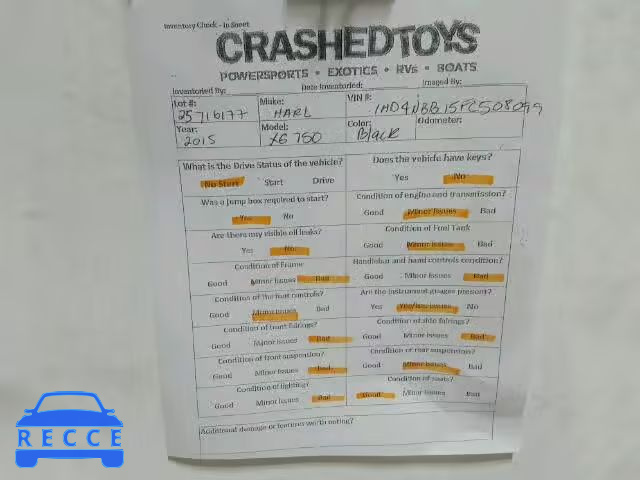 Inventory Check - In Sheet
CRASHEDTOYS
POWERSPORTS • EXOTICS • RVs • BOATS
Inventoried By: Date Inventoried: Imaged By:
Lot #: Make: VIN #:
25716177 HARL 1HD4NBB15FC508099
Year: Model: Color: Odometer:
2015 XG 750 Black
What is the Drive Status of the vehicle? Does the vehicle have keys?
No Start Start Drive Yes No
Was a jump box required to start? Condition of engine and transmission?
Yes No Good Minor Issues Bad
Are there any visible oil leaks? Condition of Fuel Tank
Yes No Good Minor Issues Bad
Condition of Frame Handlebar and hand controls condition?
Good Minor Issues Bad Good Minor Issues Bad
Condition of the foot controls? Are the instrument guages present?
Good Minor Issues Bad Yes Yes/has issues No
Condition of front fairings? Condition of side fairings?
Good Minor Issues Bad Good Minor Issues Bad
Condition of front suspension? Condition of rear suspension?
Good Minor Issues Bad Good Minor Issues Bad
Condition of lighting? Condition of seats?
Good Minor Issues Bad Good Minor Issues Bad
Additional damage or features worth noting?
RECCE